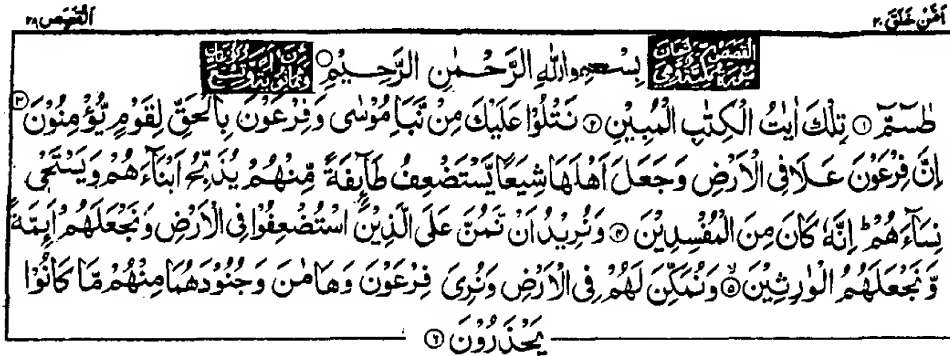 القصص ٢٨
امّن خلق ٢٠
بِسْمِ اللّٰهِ الرَّحْمٰنِ الرَّحِيْمِ
طٰسٓمّٓ ① تِلْكَ اٰيٰتُ الْكِتٰبِ الْمُبِيْنِ ② نَتْلُوْا عَلَيْكَ مِنْ نَّبَاِ مُوْسٰى وَفِرْعَوْنَ بِالْحَقِّ لِقَوْمٍ يُّؤْمِنُوْنَ ③
اِنَّ فِرْعَوْنَ عَلَا فِى الْاَرْضِ وَجَعَلَ اَهْلَهَا شِيَعًا يَّسْتَضْعِفُ طَآئِفَةً مِّنْهُمْ يُذَبِّحُ اَبْنَآءَهُمْ وَيَسْتَحْىٖ
نِسَآءَهُمْ ؕ اِنَّهٗ كَانَ مِنَ الْمُفْسِدِيْنَ ④ وَنُرِيْدُ اَنْ نَّمُنَّ عَلَى الَّذِيْنَ اسْتُضْعِفُوْا فِى الْاَرْضِ وَنَجْعَلَهُمْ اَئِمَّةً
وَّنَجْعَلَهُمُ الْوٰرِثِيْنَ ⑤ وَنُمَكِّنَ لَهُمْ فِى الْاَرْضِ وَنُرِىَ فِرْعَوْنَ وَهَامٰنَ وَجُنُوْدَهُمَا مِنْهُمْ مَّا كَانُوْا
يَحْذَرُوْنَ ⑥